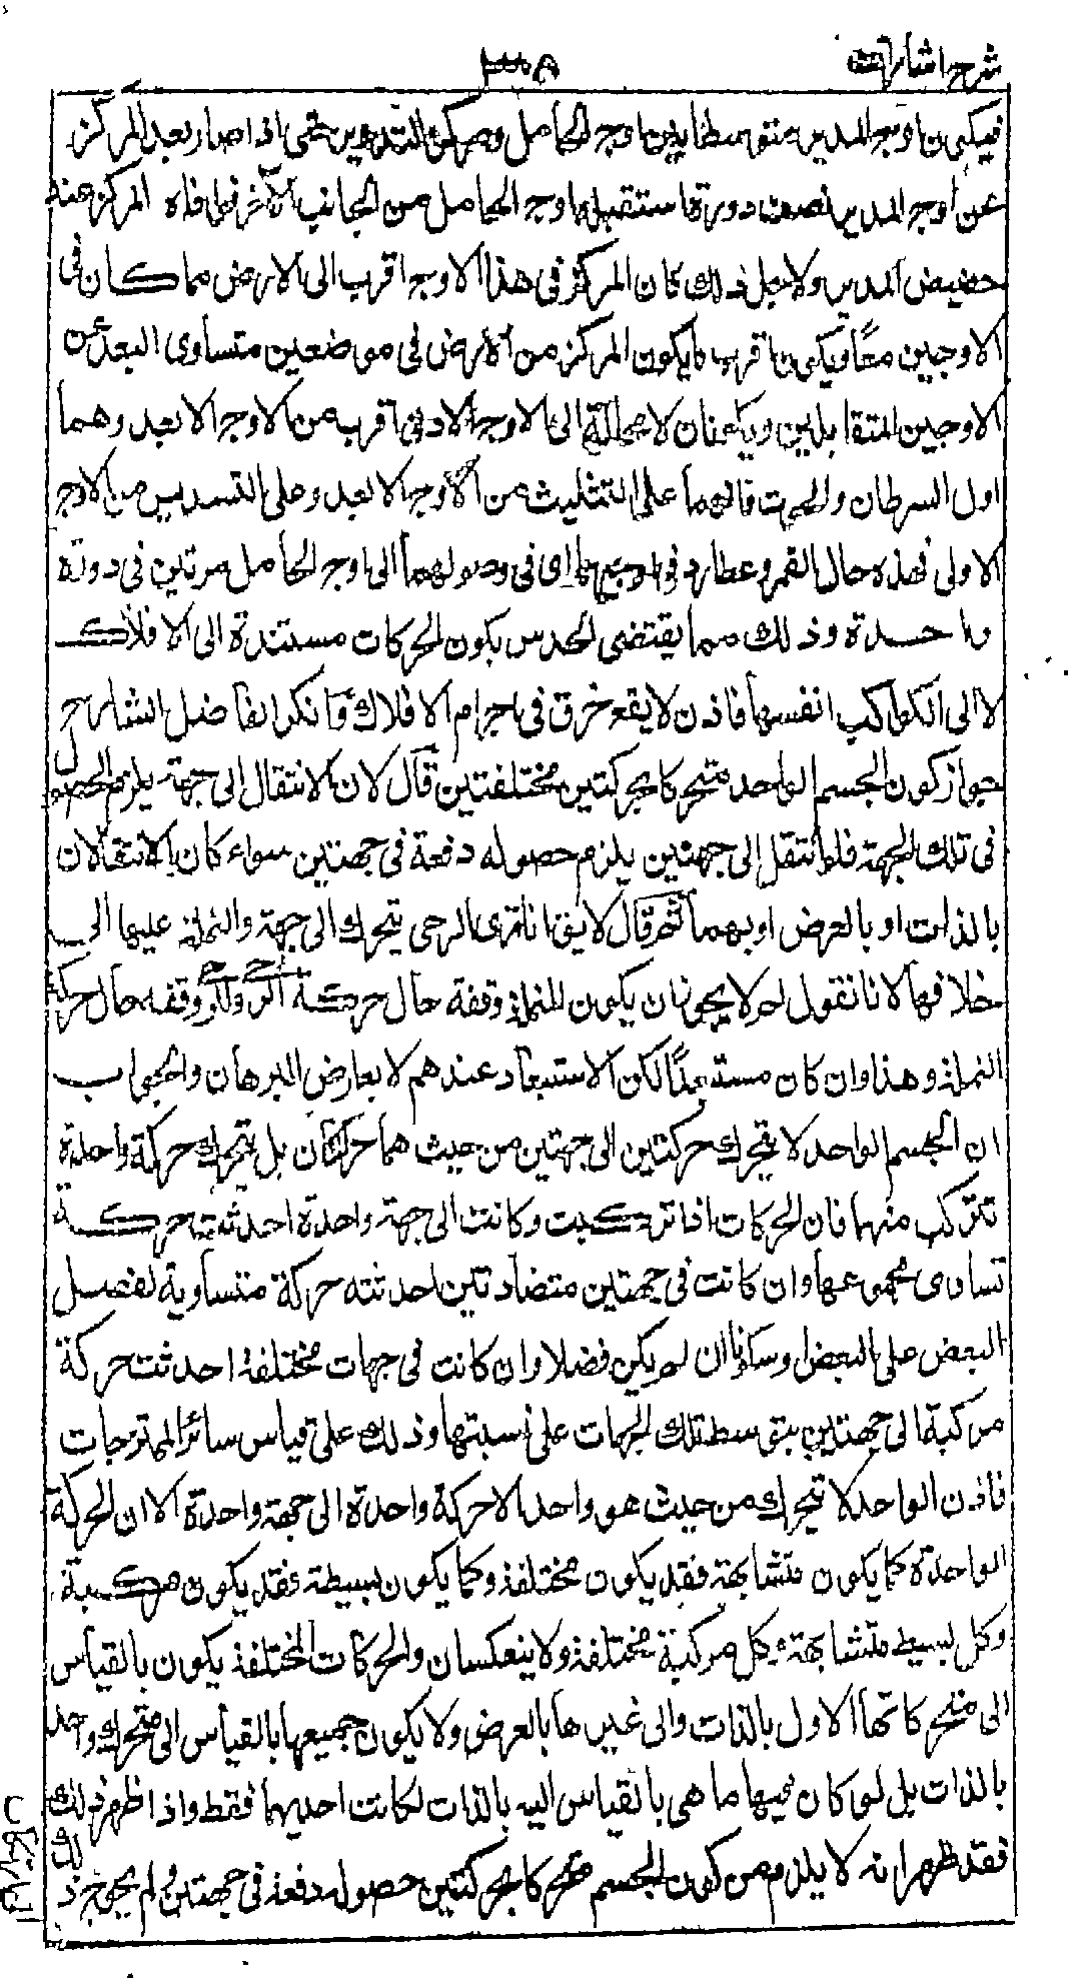 شرح اشارات
٣٠٨
فيكون اوج المدير متوسطا بين اوج الحامل ومركز التدوير حتى اذا صار بعد المركز
عن اوج المدير نصف دورة استقبلها اوج الحامل من الجانب الآخر فوافاه المركز عند
حضيض المدير ولاجل ذلك كان المركز فى هذا الاوج اقرب الى الارض مما كان فى
الاوجين معًا ويكون اقرب ما يكون المركز من الارض فى موضعين متساوى البعد عن
الاوجين المتقابلين ويكونان لا محالة الى الاوج الادنى اقرب من الاوج الابعد وهما
اول السرطان والحوت فانهما على التثليث من الاوج الابعد وعلى التسديس من الاوج
الاولى فهذه حال القمر وعطارد فى اوجيهما اى فى وصولهما الى اوج الحامل مرتين فى دورة
واحدة وذلك مما يقتضى الحدس بكون الحركات مستندة الى الافلاك
لا الى الكواكب انفسها فاذن لا يقع خرق فى اجرام الافلاك وانكر الفاضل الشارح
جواز كون الجسم الواحد متحركا بحركتين مختلفتين قال لان الانتقال الى جهة يلزم الحصول
فى تلك الجهة فلو انتقل الى جهتين يلزم حصوله دفعة فى جهتين سواء كان الانتقالان
بالذات او بالعرض او بهما ثم قال لا يق انا نرى الرحى يتحرك الى جهة والنملة عليها الى
خلافها لانا نقول لم لا يجوز ان يكون للنملة وقفة حال حركة الرحى وللرحى وقفة حال حركة
النملة وهذا وان كان مستبعدًا لكن الاستبعاد عندهم لا يعارض البرهان والجواب
ان الجسم الواحد لا يتحرك حركتين الى جهتين من حيث هما حركتان بل يتحرك حركة واحدة
تتركب منهما فان الحركات اذا تركبت وكانت الى جهة واحدة احدثت حركة
تساوى مجموعها وان كانت فى جهتين متضادتين احدثته حركة متساوية لفضل
البعض على البعض او سكونا ان لم يكن فضلا وان كانت فى جهات مختلفة احدثت حركة
مركبة الى جهتين بتوسط تلك الجهات على نسبتها وذلك على قياس سائر الممتزجات
فاذن الواحد لا يتحرك من حيث هو واحد الا حركة واحدة الى جهة واحدة الا ان الحركة
الواحدة كما يكون متشابهة فقد يكون مختلفة وكما يكون بسيطة فقد يكون مركبة
وكل بسيط متشابهة وكل مركبة مختلفة ولا ينعكسان والحركات المختلفة يكون بالقياس
الى متحركاتها الاول بالذات والى غيرها بالعرض ولا يكون جميعها بالقياس الى متحرك واحد
بالذات بل لو كان فيها ما هى بالقياس اليه بالذات لكانت احديهما فقط واذا ظهر ذلك
فقد ظهر انه لا يلزم من كون الجسم متحركا بحركتين حصوله دفعة فى جهتين ولم يحوج ذلك